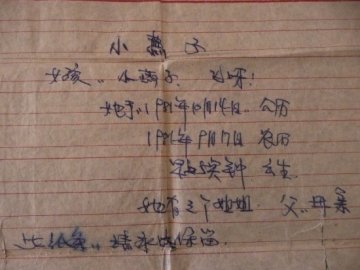 小燕子
女孩，小燕子，
她于1981年10月14日，公历
1981年9月17日 农历
点 分钟 出生
她有三个姐姐，父，母亲
此纸条，请永远保留